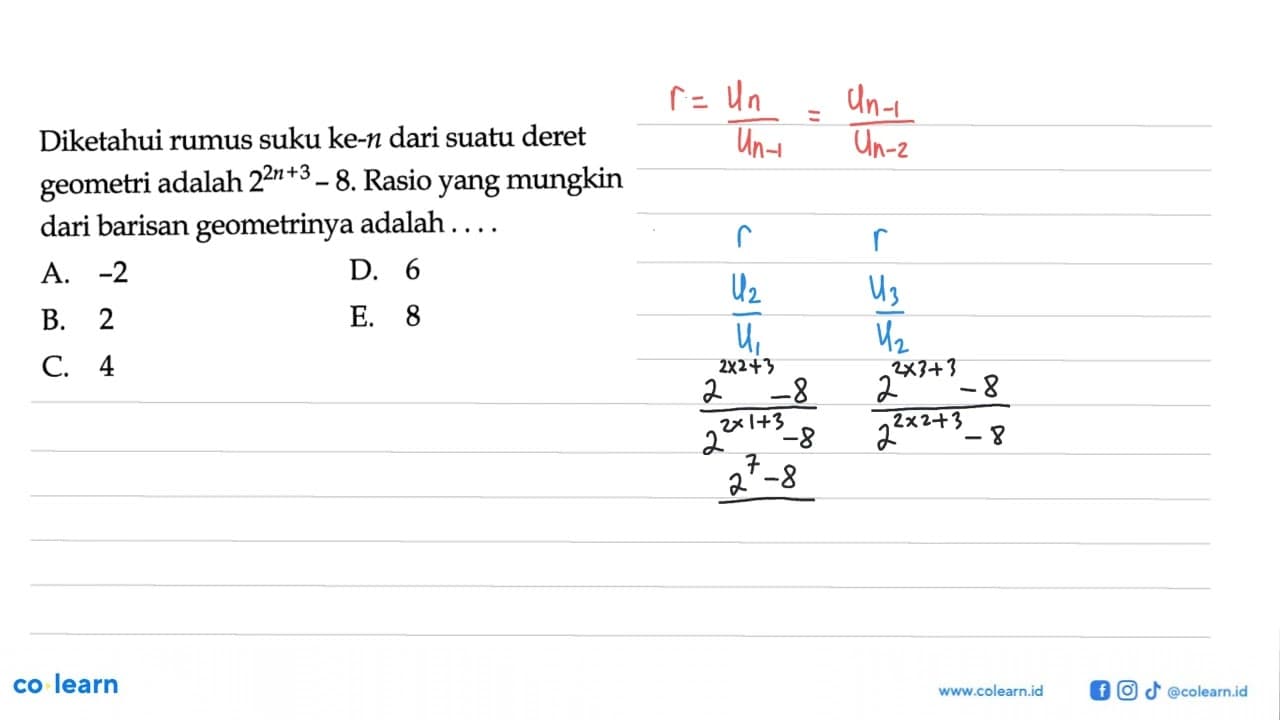 Diketahui rumus suku ke-n dari suatu deret
geometri adalah 2^{2n+3} – 8. Rasio yang mungkin
dari barisan geometrinya adalah . . . .
A. –2
B. 2
C. 4
D. 6
E. 8
r = Un/Un-1 = Un-1/Un-2
r r
U2/U1 U3/U2
(2^{2x2+3} - 8)/(2^{2x1+3} - 8) (2^{2x3+3} - 8)/(2^{2x2+3} - 8)
2^7 - 8
co learn
www.colearn.id
@colearn.id